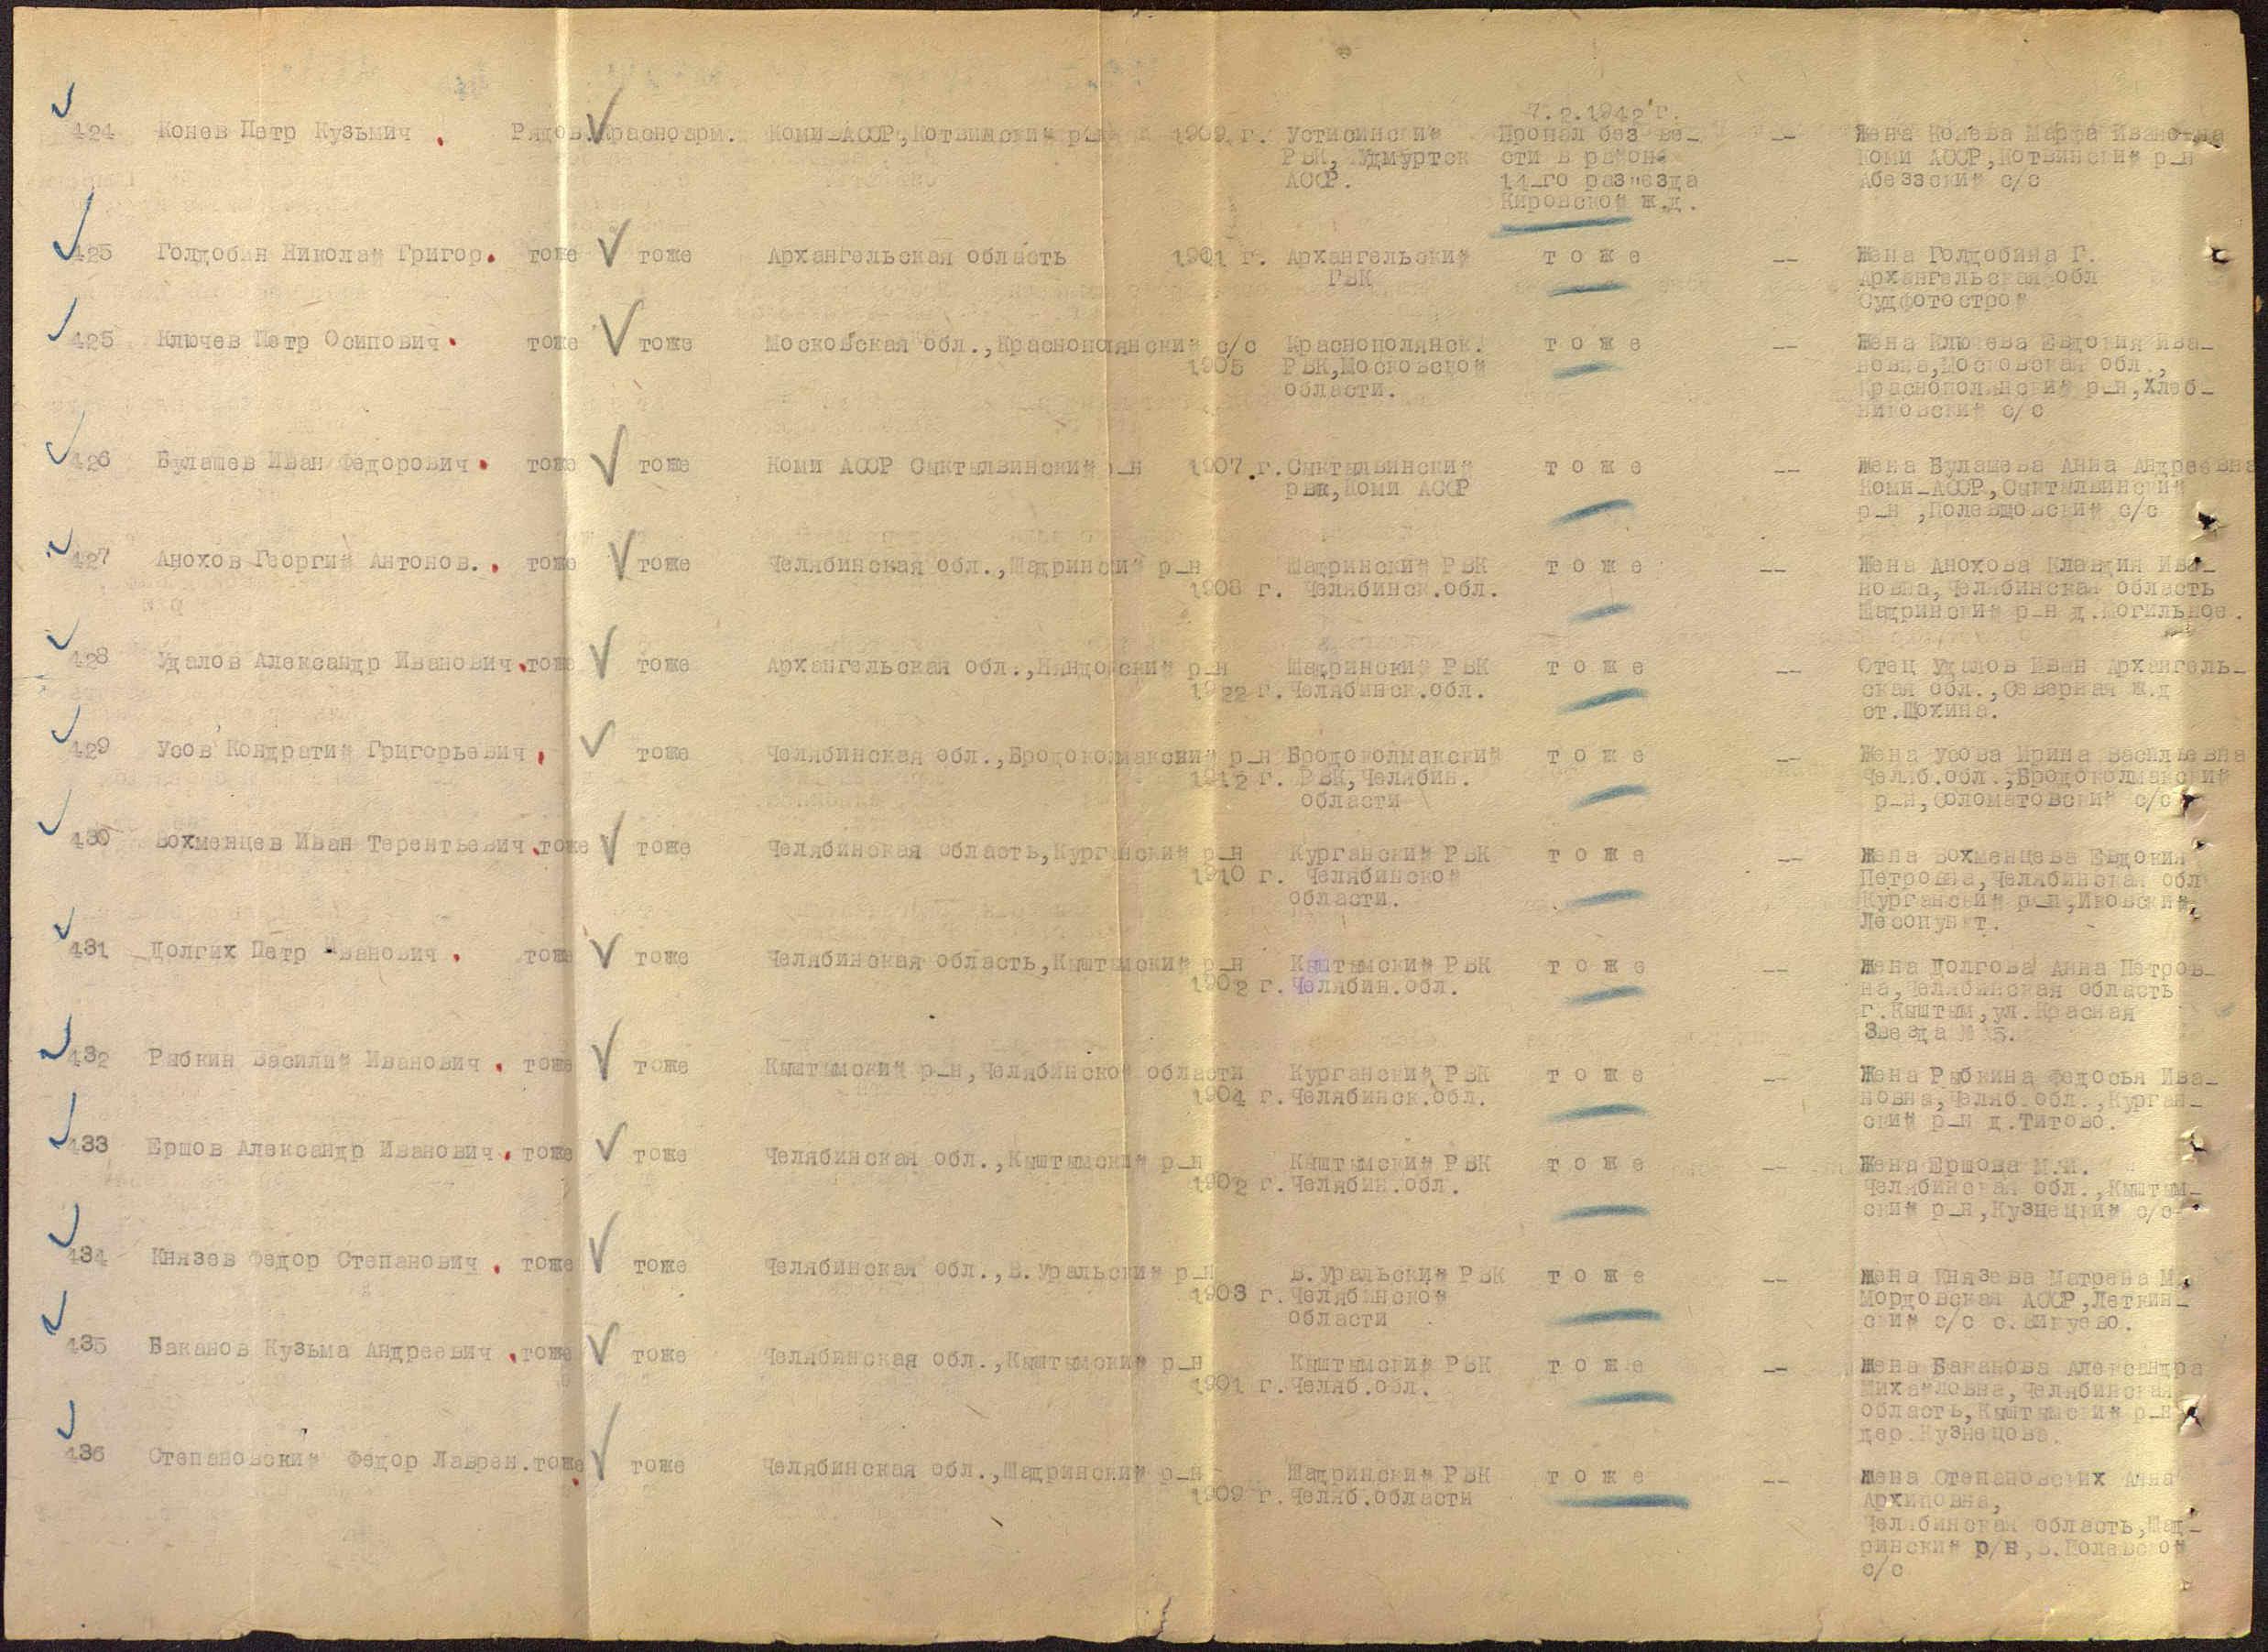 7.2.1942 г.
424 Конев Петр Кузьмич. Рядов. Красноарм. Коми-АССР, Котвимский р-н 1909 г. Устисинский Пропал без ве- -- Жена Конева Марфа Ивановна
РВК, Удмуртск сти в районе Коми АССР, Котвинский р-н
АССР. 14-го разъезда Абеззский с/с
Кировской ж.д.
425 Голдобин Николай Григор. тоже тоже Архангельская область 1901 г. Архангельский тоже -- Жена Голдобина Г.
ГВК Архангельская обл
Судфотострой
425 Ключев Петр Осипович. тоже тоже Московская обл., Краснополянский с/с Краснополянск. тоже -- Жена Ключева Евдокия Ива-
1905 РВК, Московской новна, Московская обл.,
области. Краснополянский р-н, Хлеб-
никовский с/с
426 Булашев Иван Федорович. тоже тоже Коми АССР Сыктывинский р-н 1907 г. Сыктывинский тоже -- Жена Булашева Анна Андреевна
рвк, Коми АССР Коми-АССР, Сыктывинский
р-н, Полевщовский с/с
427 Анохов Георгий Антонов.. тоже тоже Челябинская обл., Шадринский р-н Шадринский РВК тоже -- Жена Анохова Клавдия Ива-
1908 г. Челябинск.обл. новна, Челябинская область
Шадринский р-н д.Могильное.
428 Удалов Александр Иванович. тоже тоже Архангельская обл., Няндомский р-н Шадринский РВК тоже -- Отец Удалов Иван Архангель-
1922 г. Челябинск.обл. ская обл., Северная ж.д
ст.Шохина.
429 Усов Кондратий Григорьевич. тоже Челябинская обл., Бродоколмакский р-н Бродоколмакский тоже -- Жена Усова Ирина Васильевна
1912 г. РВК, Челябин. Челяб.обл., Бродоколмакский
области р-н, Соломатовский с/с
430 Вохменцев Иван Терентьевич. тоже тоже Челябинская область, Курганский р-н Курганский РВК тоже -- Жена Вохменцева Евдокия
1910 г. Челябинской Петровна, Челябинская обл
области. Курганский р-н, Иковский,
Лесопункт.
431 Долгих Петр Иванович. тоже тоже Челябинская область, Кыштымский р-н Кыштымский РВК тоже -- Жена Долгова Анна Петров-
1902 г. Челябин.обл. на, Челябинская область
г.Кыштым, ул.Красная
Звезда № 5.
432 Рябкин Василий Иванович. тоже тоже Кыштымский р-н, Челябинской области Курганский РВК тоже -- Жена Рябкина Федосья Ива-
1904 г. Челябинск.обл. новна, Челяб.обл., Курган-
ский р-н д.Титово.
433 Ершов Александр Иванович. тоже тоже Челябинская обл., Кыштымский р-н Кыштымский РВК тоже -- Жена Ершова М.И.
1902 г. Челябин.обл. Челябинская обл., Кыштым-
ский р-н, Кузнецкий с/с
434 Князев Федор Степанович. тоже тоже Челябинская обл., В.Уральский р-н В.Уральский РВК тоже -- Жена Князева Матрена М.
1903 г. Челябинской Мордовская АССР, Леткин-
области ский с/с с.
435 Баканов Кузьма Андреевич. тоже тоже Челябинская обл., Кыштымский р-н Кыштымский РВК тоже -- Жена Баканова Александра
1901 г. Челяб.обл. Михайловна, Челябинская
область, Кыштымский р-н
дер.Кузнецова.
436 Степановский Федор Лаврен. тоже тоже Челябинская обл., Шадринский р-н Шадринский РВК тоже -- Жена Степановских Анна
1909 г. Челяб.области Архиповна,
Челябинская область, Шад-
ринский р/н, В.Полевской
с/с